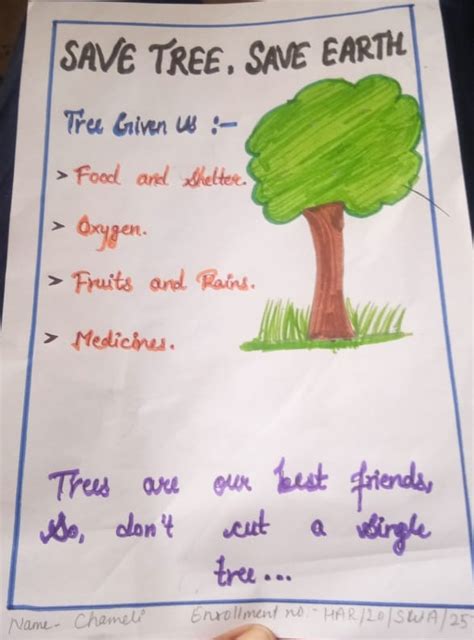 SAVE TREE, SAVE EARTH
Tree Given us :-
> Food and shelter.
> Oxygen.
> Fruits and Rains.
> Medicines.
Trees are our best friends,
So, don't cut a single
tree...
Name- Chameli Enrollment no.- HAR/20/SWA/25